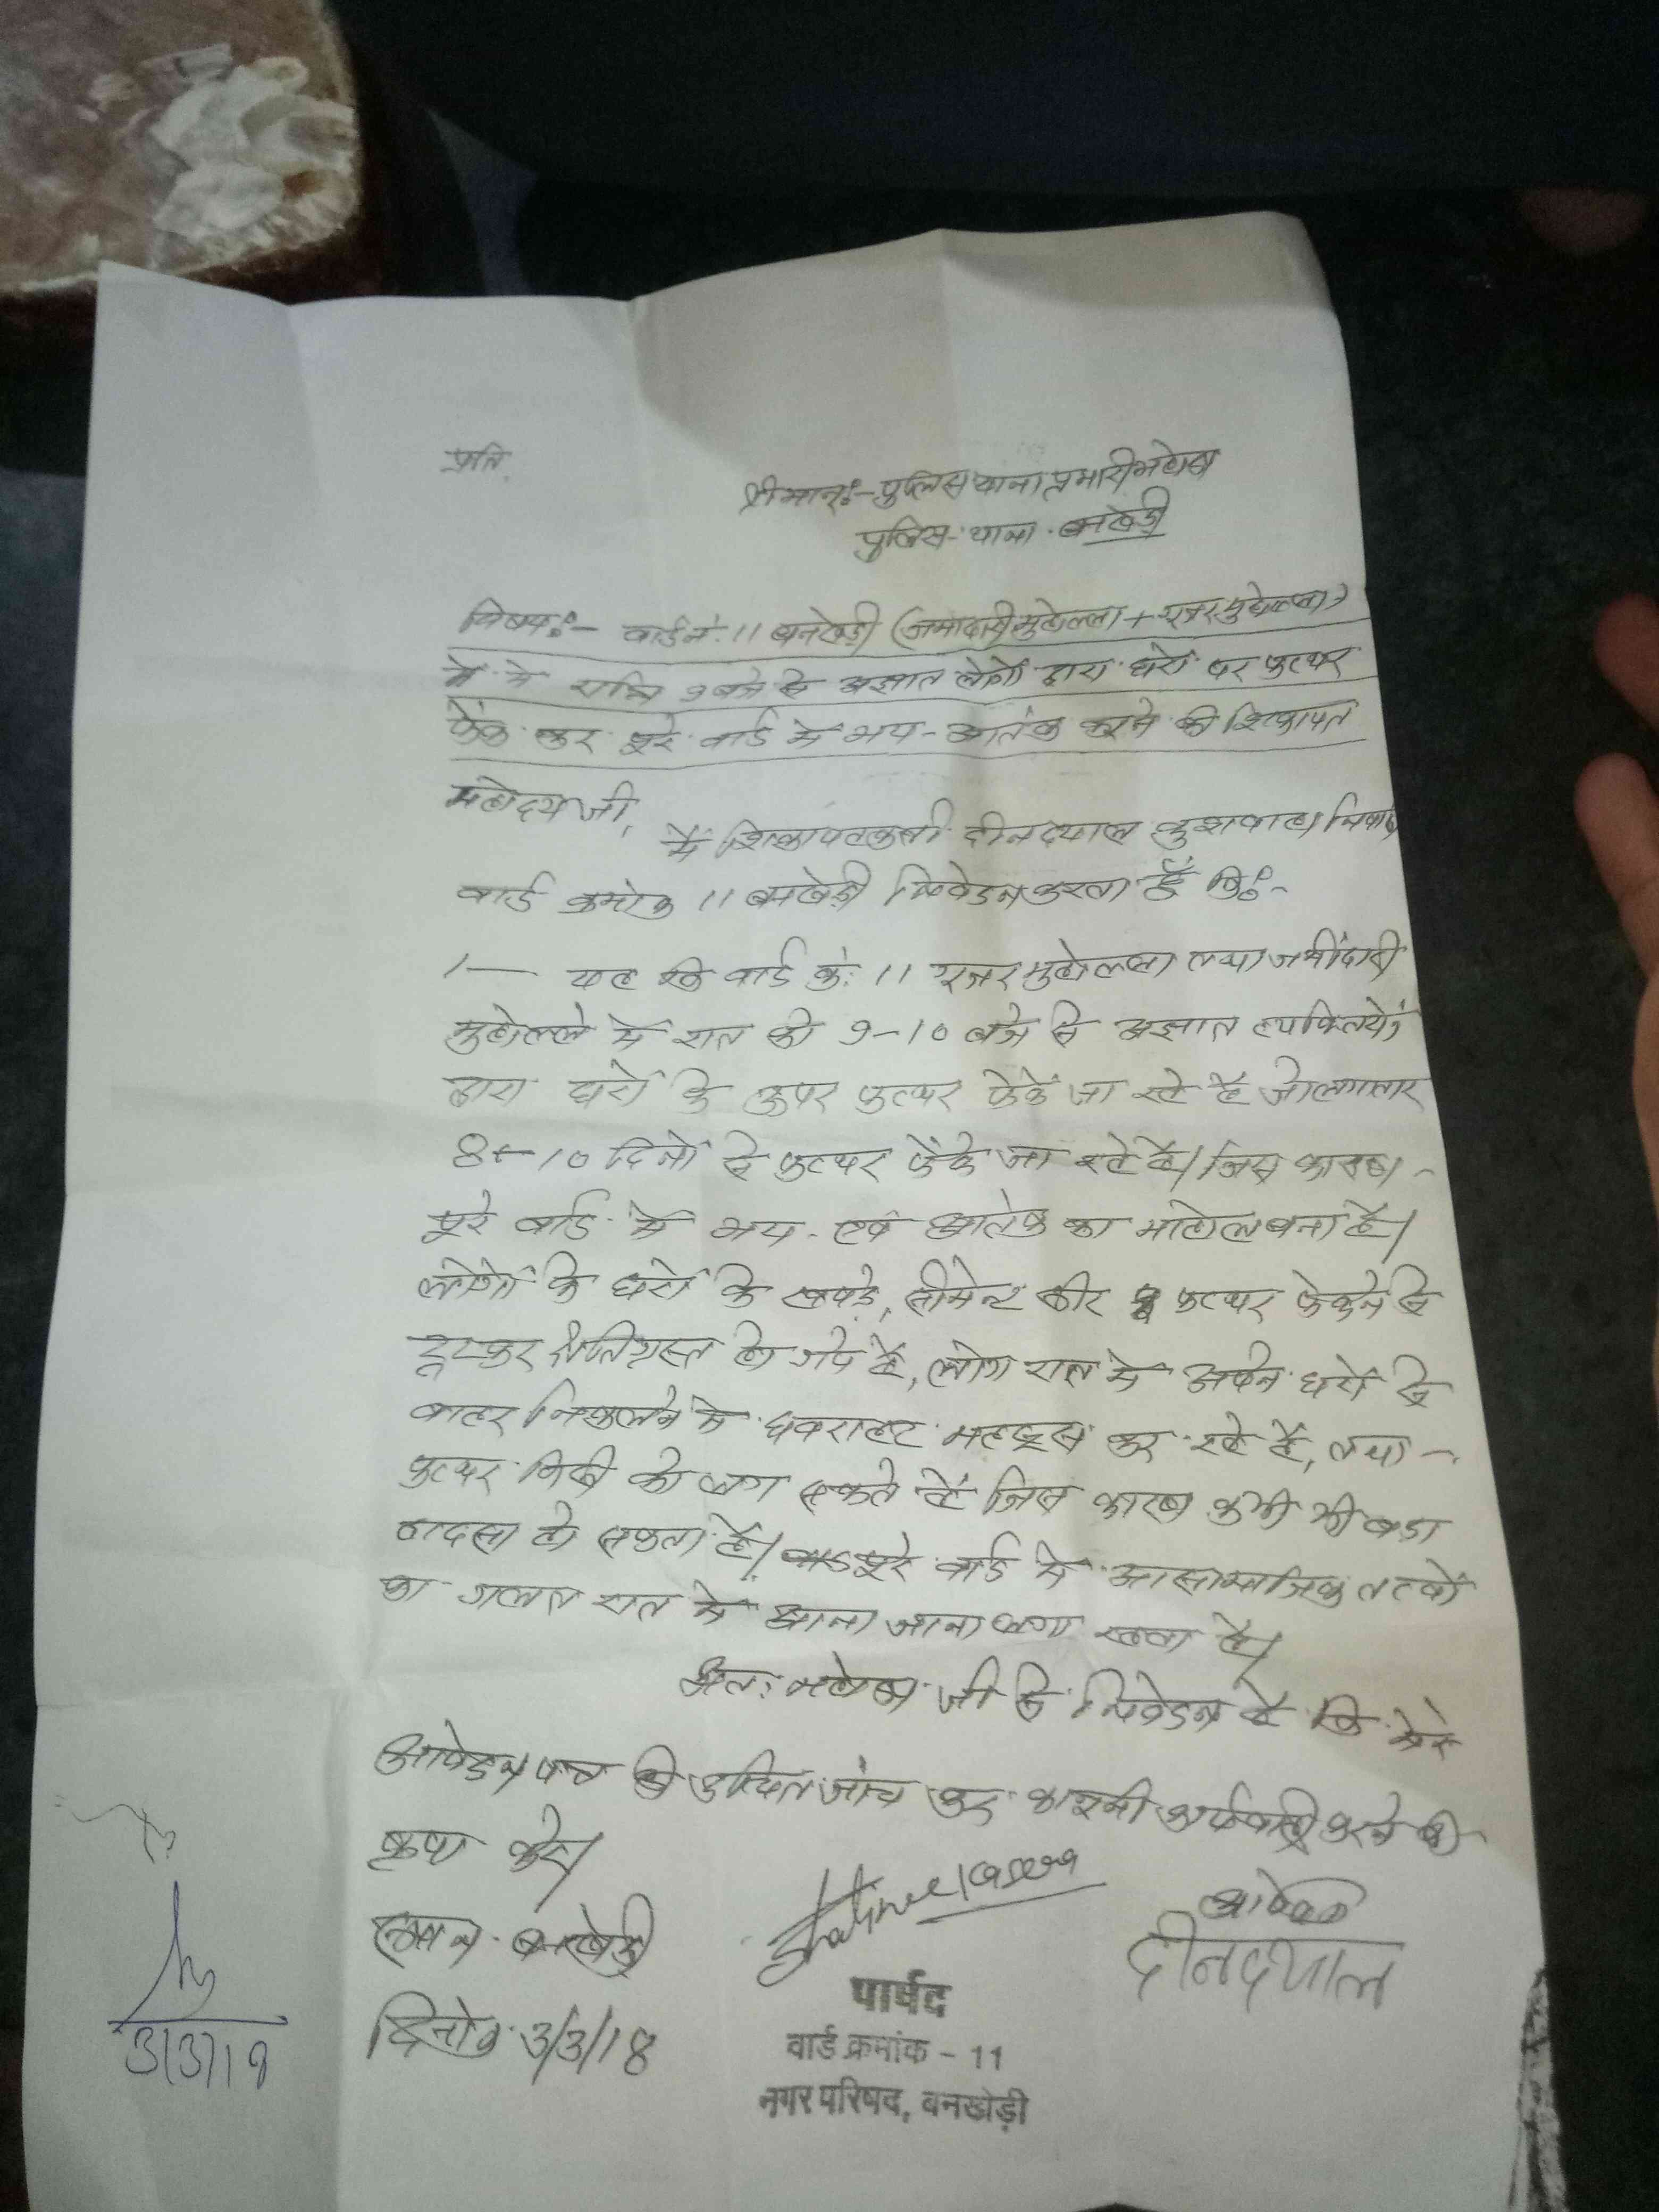 प्रति,
श्रीमान्:- पुलिस थाना प्रभारी महोदय
पुलिस-थाना. बनखेड़ी
विषय:- वार्ड नं. 11 बनखेड़ी (जमादारी मुहोल्ला + गूजर मुहोल्ला)
में में रात्रि 9 बजे से अज्ञात लोगों द्वारा घरों पर फत्थर
फेंक कर पूरे वार्ड में भय-आतंक करने की शिकायत
महोदय जी,
मैं शिकायतकर्ता दीनदयाल कुशवाहा निवासी
वार्ड क्रमांक 11 बनखेड़ी निवेदन करता हूँ कि:-
1— यह कि वार्ड क्रं: 11 गूजर मुहोल्ला तथा जमींदारी
मुहोल्ले में रात को 9-10 बजे से अज्ञात व्यक्तियों
द्वारा घरों के ऊपर फत्थर फेकें जा रहे है जो लगातार
8-10 दिनों से फत्थर फेंके जा रहे है। जिस कारण-
पूरे वार्ड में भय-एवं आतंक का माहोल बना है।
लोगों के घरों के खपड़े, सीमेन्ट सीट फत्थर फेकने से
टूटकर क्षतिग्रस्त हो गये है, लोग रात में अपने घरों से
बाहर निकलने में घबराहट महसूस कर रहे है, तथा-
फत्थर किसी को लग सकते हैं जिस कारण कभी भी बड़ा
हादसा हो सकता है। पूरे वार्ड में आसामाजिक तत्वों
का गलत रात में आना जाना लगा रहता है।
अत: महोदय जी से निवेदन है कि मेरे
आवेदन पत्र की उचित जांच कर कानूनी कार्यवाही करने की
कृपा करें।
स्थान- बनखेड़ी
दिनांक 3/3/18
आवेदक
दीनदयाल
पार्षद
वार्ड क्रमांक - 11
नगर परिषद, बनखेड़ी
3/3/18